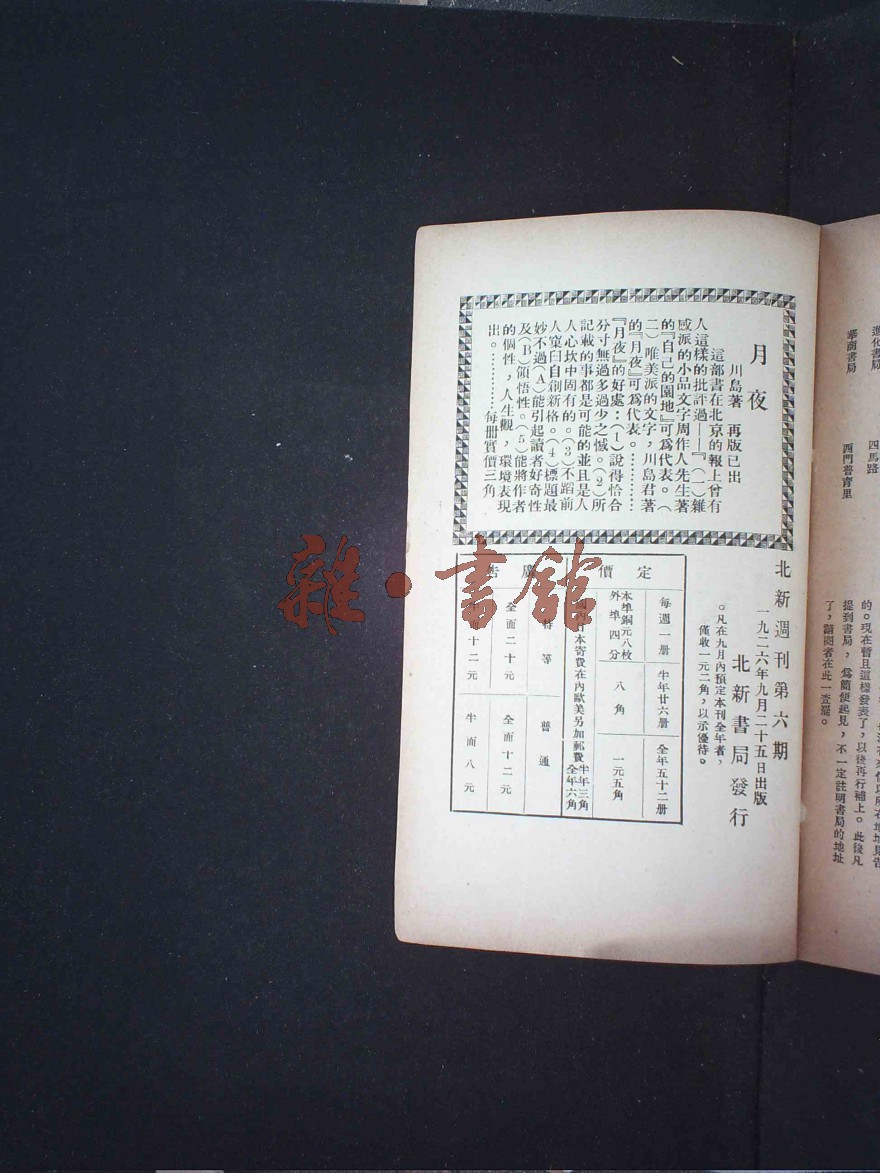 進化書局
四馬路
華商書局
西門普育里
的。現在暫且這樣發表了，以後再行補上。此後凡
提到書局，爲簡便起見，不一定註明書局的地址
了，請閱者在此一查罷。
月夜
川島著 再版已出
這部書在北京的報上曾有
人這樣的批評過——『（一）雜
感派的小品文字周作人先生著
的『自己的園地』可爲代表。（
二）唯美派的文字，川島君著
的『月夜』可爲代表。…………
『月夜』的好處：（1）說得恰合
分寸無過多過少之憾。（2）所
記載的事都是可能的並且是人
人心坎中固有的。（3）不蹈前
人窠臼自創新格。（4）標題最
妙不過（A）能引起讀者好奇性
及（B）領悟性。（5）能將作者
的個性，人生觀，環境表現
出。…………每册實價三角
北新週刊第六期
一九二六年九月二十五日出版
北新書局發行
。凡在九月內預定本刊全年者，
僅收一元二角，以示優待。
定價
每週一册
半年廿六册
全年五十二册
本埠銅元八枚
外埠四分
八角
一元五角
國內日本寄費在內歐美另加郵費
半年三角
全年六角
廣告
特等
普通
全面二十元
全面十二元
十二元
半面八元
雜·書館